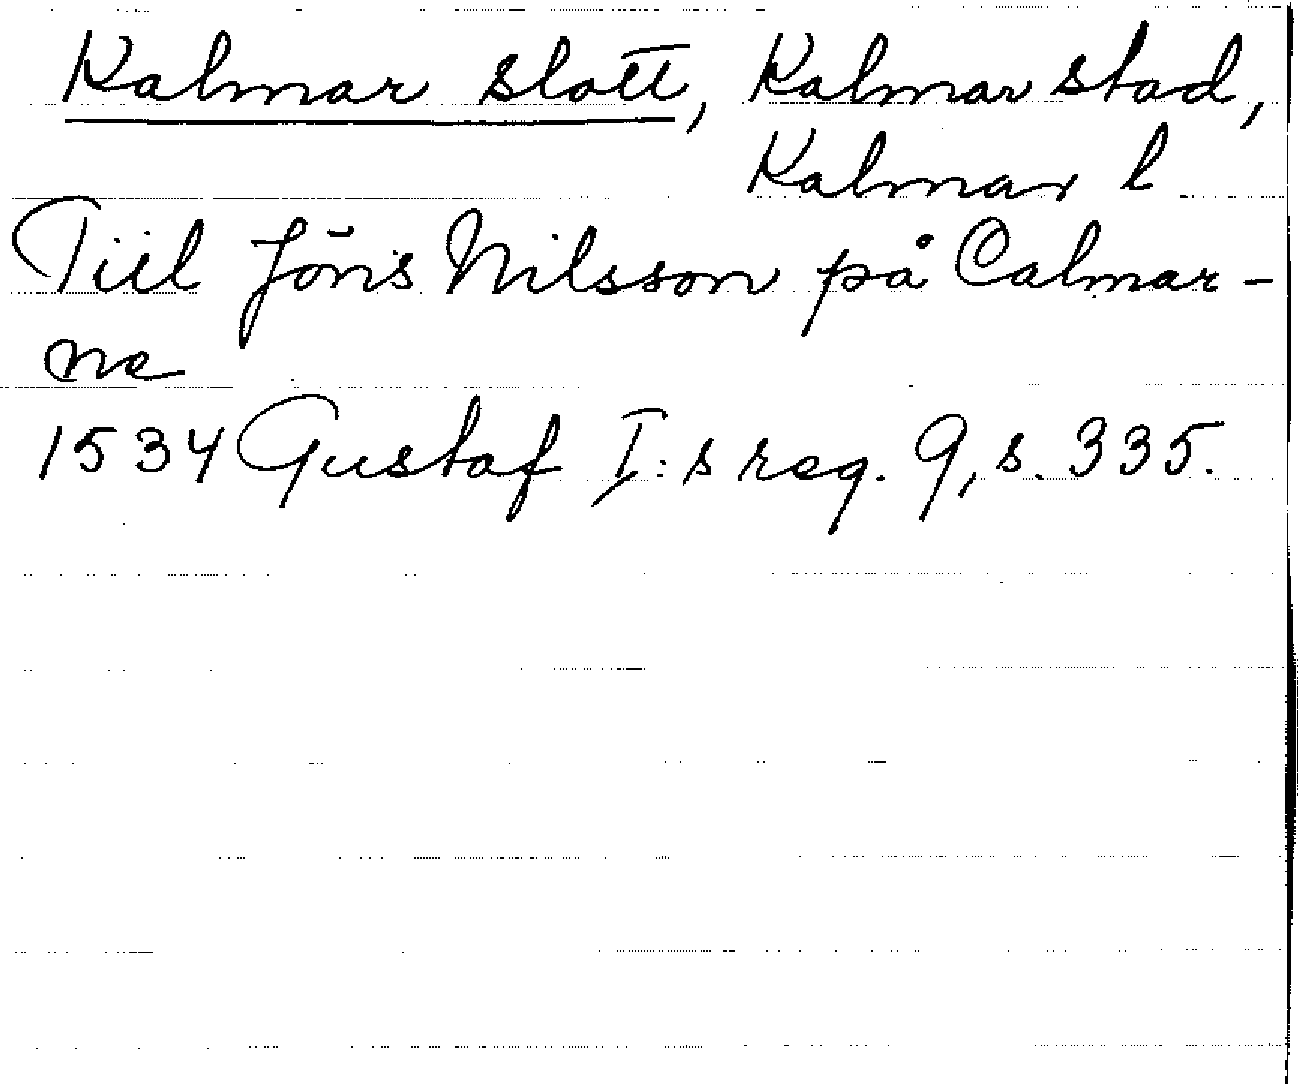 Kalmar slott, Kalmar stad,
Kalmar l
Tiil Jöns Nilsson på Calmar-
ne
1534 Gustaf I:s reg. 9, s. 335.